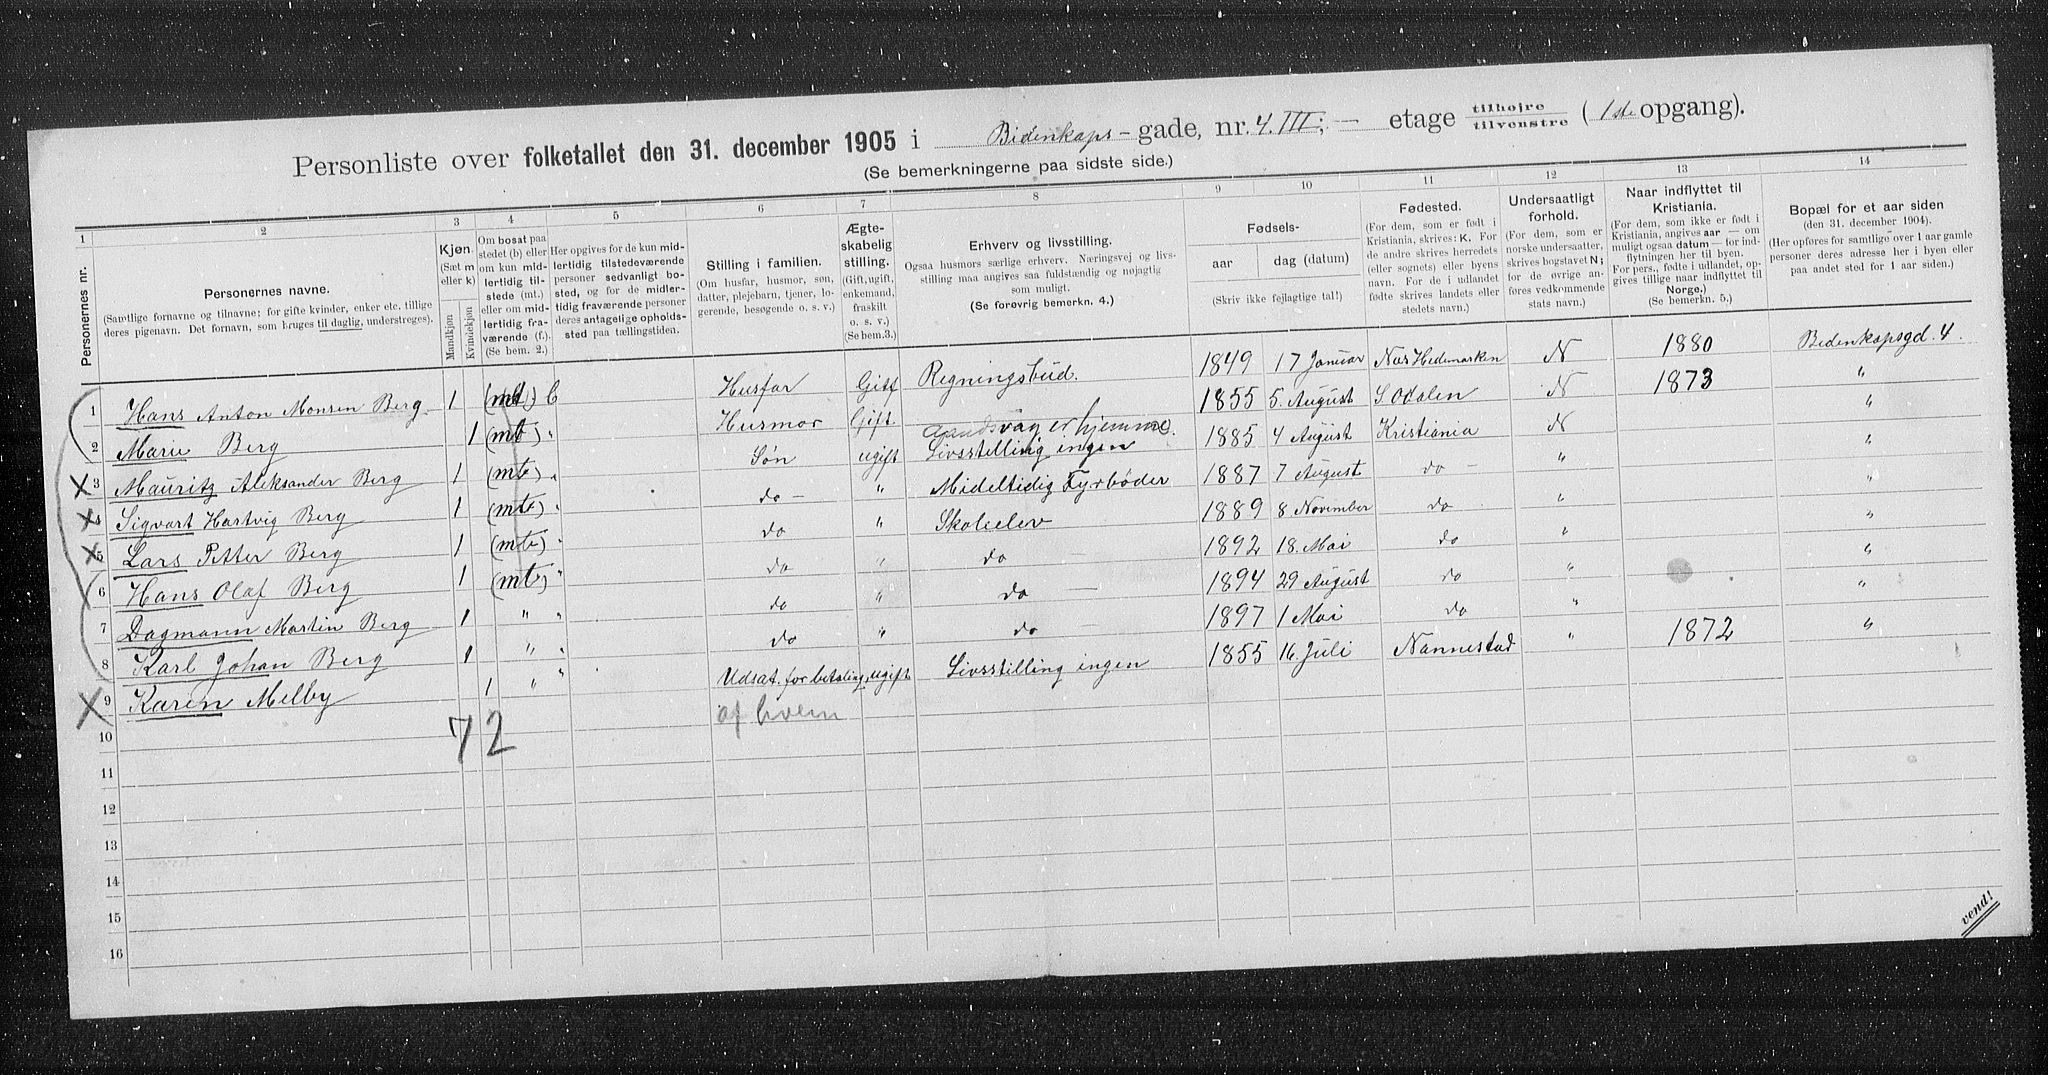 Personliste over folketallet den 31. december 1905 i Bidenkaps-gade, nr. 4. III; — etage tilhøire tilvenstre (1ste opgang).
(Se bemerkningerne paa sidste side.)
1 2 3 4 5 6 7 8 9 10 11 12 13 14
Personernes nr.
Personernes navne.
(Samtlige fornavne og tilnavne; for gifte kvinder, enker etc. tillige
deres pigenavn. Det fornavn, som bruges til daglig, understreges).
Kjøn.
(Sæt m
eller k)
Mandkjøn
Kvindekjøn
Om bosat paa
stedet (b) eller
om kun mid-
lertidig til-
stede (mt.)
eller om mid-
lertidig fra-
værende (f.).
(Se bem. 2.)
Her opgives for de kun mid-
lertidig tilstedeværende
personer sedvanlig bo-
sted, og for de midler-
tidig fraværende personer
deres antagelige opholds-
sted paa tællingstiden.
Stilling i familien.
(Om husfar, husmor, søn,
datter, plejebarn, tjener, lo-
gerende, besøgende o. s. v.)
Ægte-
skabelig
stilling.
(Gift, ugift,
enkemand,
fraskilt
o. s. v.)
(Se bem.3.)
Erhverv og livsstilling.
Ogsaa husmors særlige erhverv. Næringsvej og livs-
stilling maa angives saa fuldstændig og nøjagtig
som muligt.
(Se forøvrig bemerkn. 4.)
Fødsels-
aar
dag (datum)
(Skriv ikke fejlagtige tal!)
Fødested.
(For dem, som er født i
Kristiania, skrives: K. For
de andre skrives herredets
(eller sognets) eller byens
navn. For de i udlandet
fødte skrives landets eller
stedets navn.)
Undersaatligt
forhold.
(For dem, som er
norske undersaatter,
skrives bogstavet N;
for de øvrige an-
føres vedkommende
stats navn.)
Naar indflyttet til
Kristiania.
(For dem, som ikke er født i
Kristiania, angives aar — om
muligt ogsaa datum — for ind-
flytningen her til byen.
For pers., fødte i udlandet, op-
gives tillige naar indflyttet til
Norge.)
(Se bemerkn. 5.)
Bopæl for et aar siden
(den 31. december 1904).
(Her opføres for samtlige over 1 aar gamle
personer deres adresse her i byen eller
paa andet sted for 1 aar siden.)
1 Hans Anton Monsen Berg. 1 b Husfar Gift Regningsbud. 1849 17 Januar Næs Hedemarken N 1880 Bidenkapsgd. 4.
2 Marie Berg 1 (mt) " Husmor Gift 1855 5. August S Odalen N 1873 "
er hjemme.
3 Mauritz Aleksander Berg 1 (mt) " Søn ugift Livsstilling ingen 1885 4 August Kristiania N "
4 Sigvart Hartvig Berg 1 (mt) " do — " Mideltidig Fyrbøder 1887 7 August do — " "
5 Lars Petter Berg 1 (mt) " do " Skoleelev 1889 8 November do " "
6 Hans Olaf Berg 1 (mt) " do " do — 1892 18. Mai do " "
7 Dagmann Martin Berg 1 " " do " do — 1894 29 August do " "
8 Karl Johan Berg 1 " " do " do — 1897 1 Mai do " "
9 Karen Melby 1 " " Udsat. for betaling, ugift Livsstilling ingen 1855 16. Juli Nannestad " 1872 "
10 7 2 af hvem
11
12
13
14
15
16
vend!